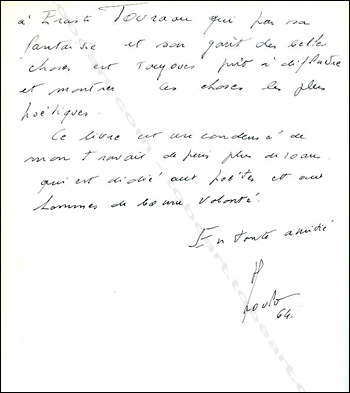 à Eraste Touraou qui par sa
fantaisie et son goût des belles
choses est toujours prêt à diffuser
et montrer les choses les plus
poétiques.
Ce livre est un condensé de
mon travail depuis plus de 10 ans
qui est dédié aux poètes et aux
hommes de bonne volonté.
En toute amitié
64.